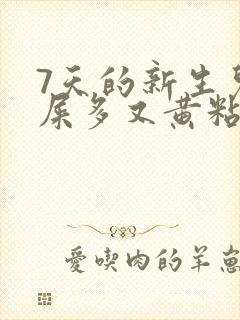 7天的新生
屎多又黄粘
爱喫肉的羊